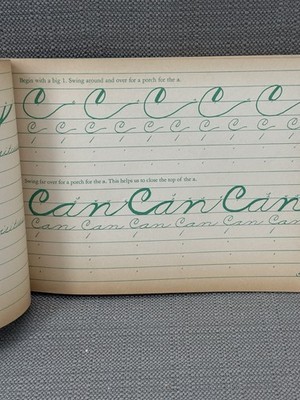 Begin with a big 1. Swing around and over for a porch for the a.
C C C C C
C C C C C C
Swing far over for a porch for the a. This helps us to close the top of the a.
Can Can Can
Can Can Can Can Can Can